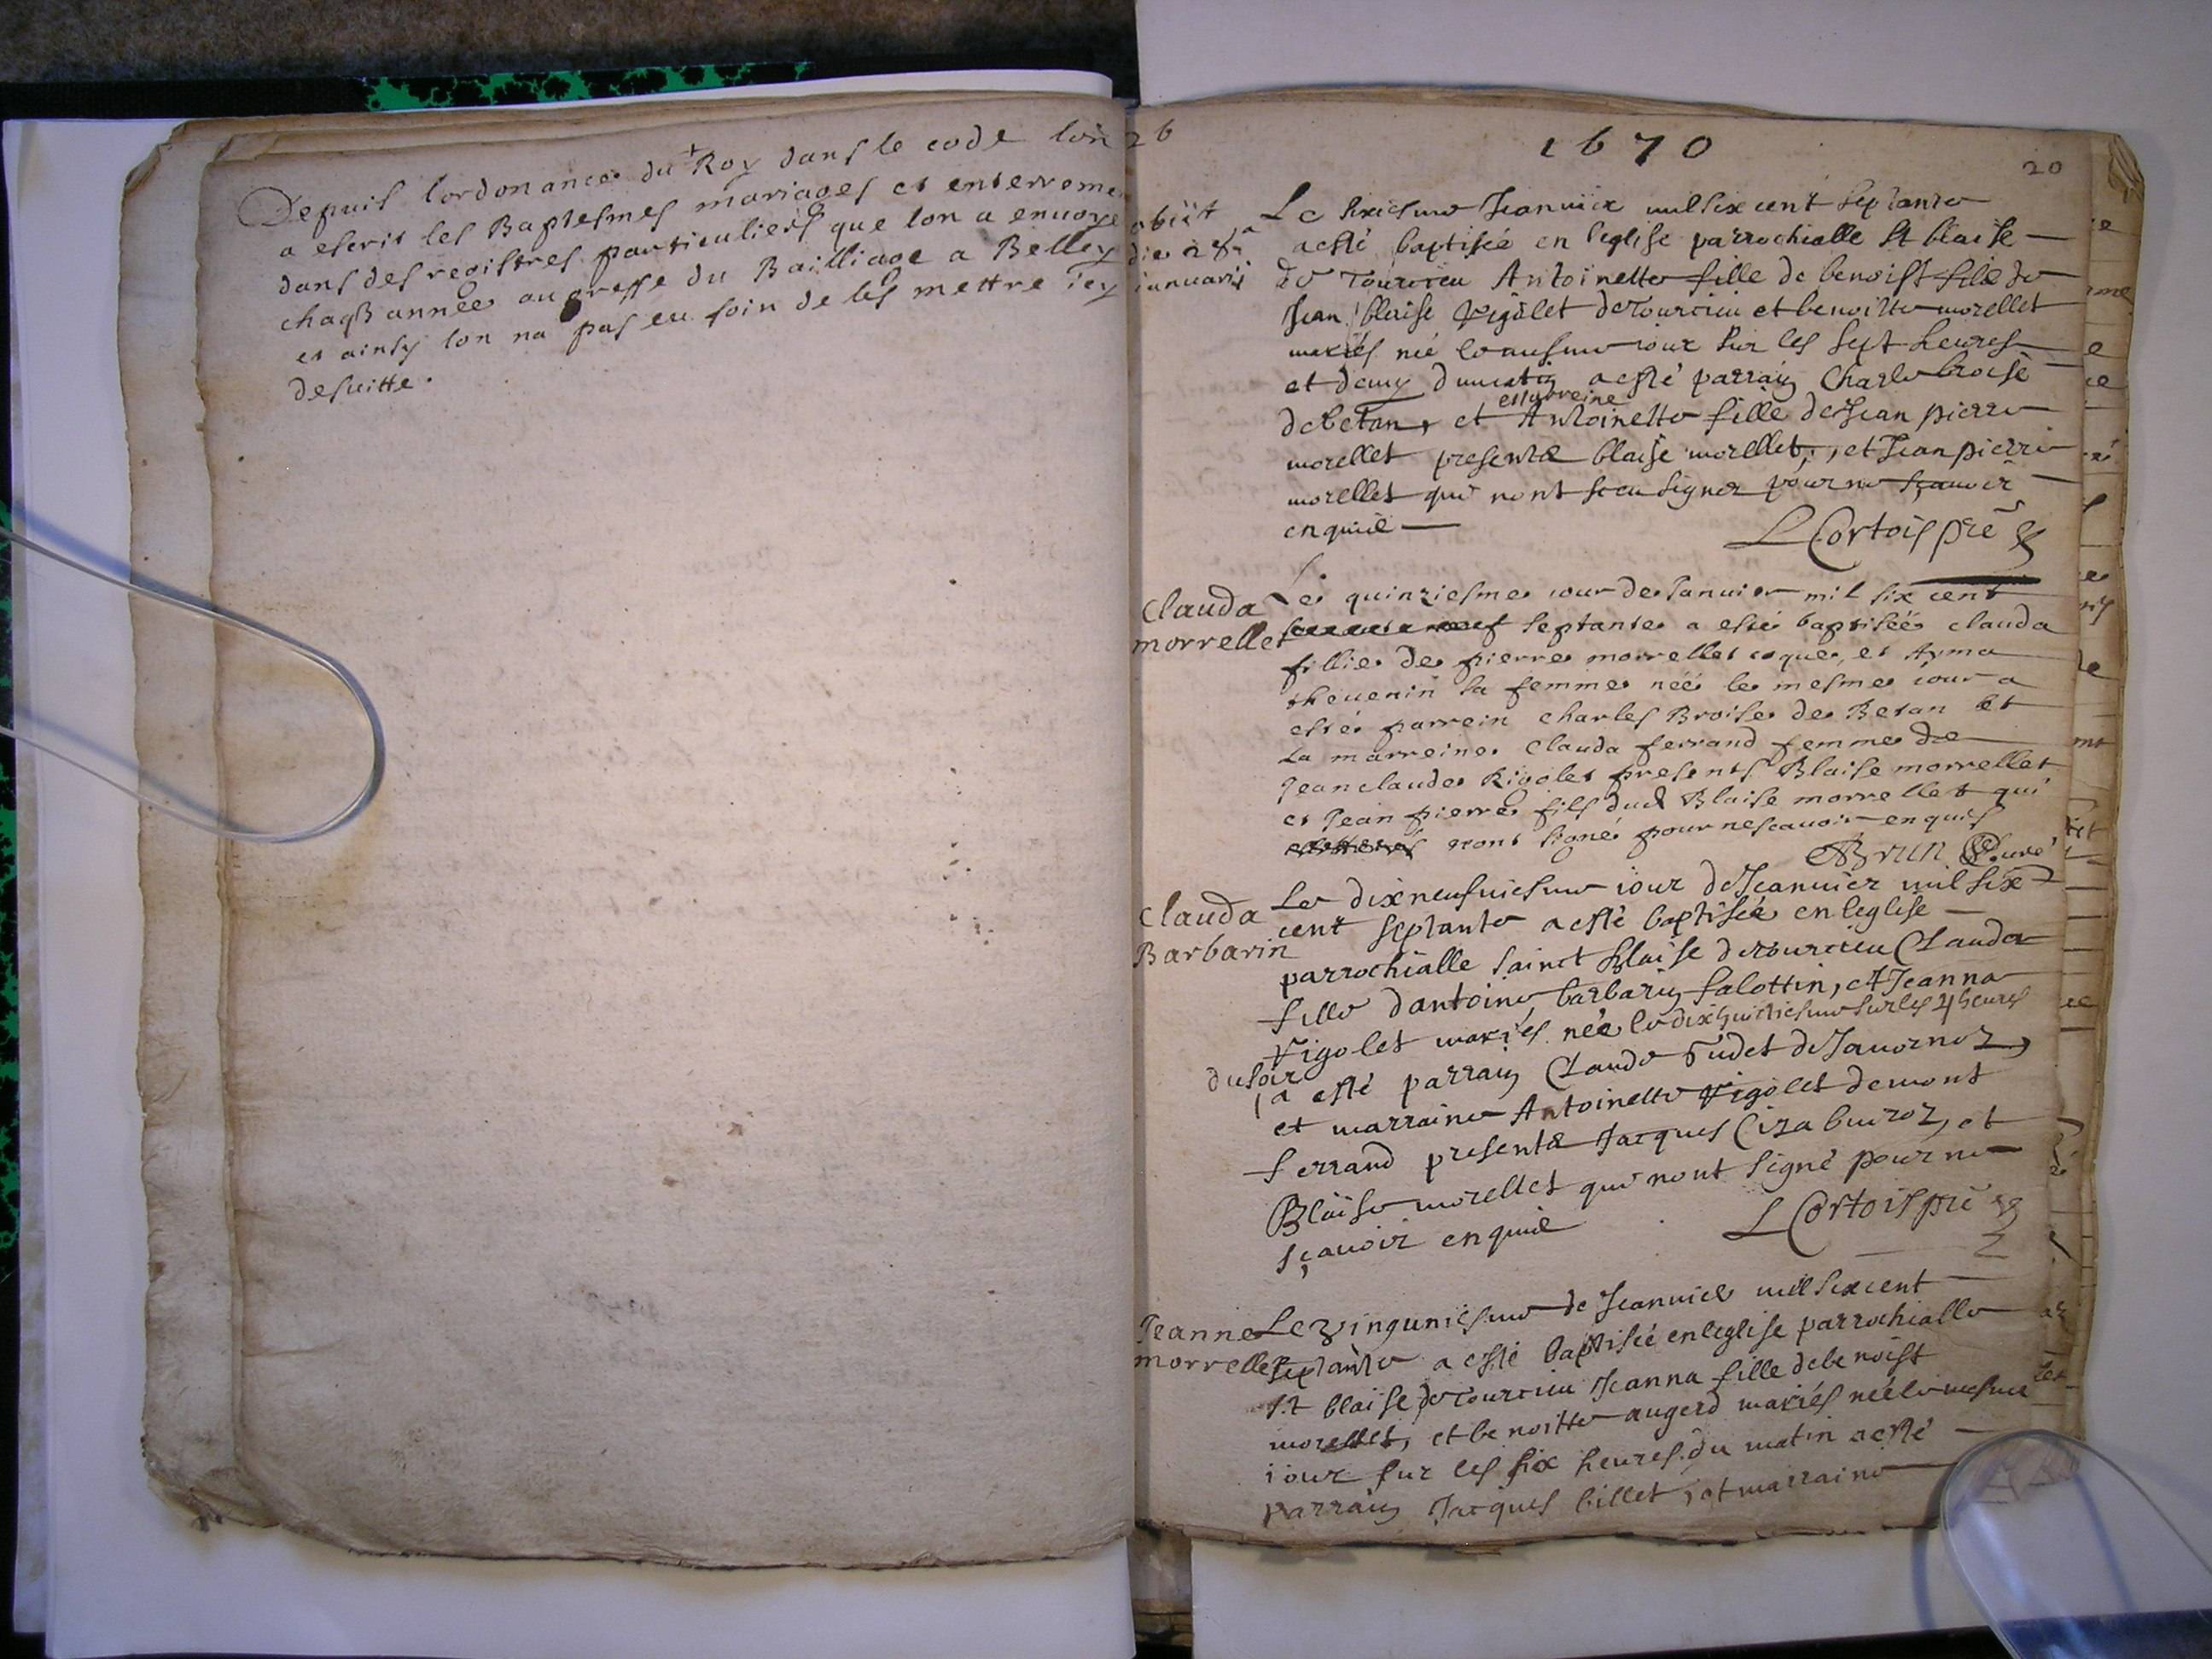 Depuis lordonance du Roy dans le code lon
a escrit les Baptesmes mariages et enterreme
dans des registres particuliers que lon a enuoye
chaqß année au greffe du Bailliage a Belley
et ainsy lon na pas eu soin de les mettre icy
desuitte.
26
1670
20
obiit
die 28a
ianuarii
Le sixiesme Jeanuier mil six cent septante
a esté baptisée en leglise parrochialle St blaise
de Tourcieu Antoinette fille de benoist fils de
Jean blaise Rigolet de Tourcieu et benoitte morellet
mariés née le mesme iour sur les sept heures
et demy du matin a esté parrain Charle broise
de betan, et Antoinette fille de Jean pierre
et la marreine
morellet presents blaise morellet, et Jean pierre
morellet qui nont sceu signer pour ne sçauoir
enquis
L Cortois pre
Clauda
morrellet
Le quinziesme iour de Januier mil six cent
septante a esté baptisée clauda
fillie de pierre morrellet coque, et Ayma
theuenin sa femme née le mesme iour a
esté parrein charles Broise de Betan et
la marreine Clauda ferrand femme de
Jean claude Rigolet presents Blaise morrellet
et Jean pierre fils dud Blaise morrellet qui
nont signé pour ne scauoir enquis
Brun Curé
Clauda
Barbarin
Le dixneufuiesme iour de Jeanuier mil six
cent septante a esté baptisée en leglise
parrochialle sainct blaise de Tourcieu Clauda
fille dantoine barbarin falottin, et Jeanna
Rigolet mariés née le dixhuictiesme sur les 4 heures
du soir
a esté parrain Claude Sudet de Jauornoz,
et marraine Antoinette Rigolet de mont
ferrand presents Jacques Cizabuiroz, et
Blaise morellet qui nont signé pour ne
sçauoir enquis
L Cortois pre
Jeanne
morrellet
Le vinguniesme de Jeanuier mil six cent
septante a esté baptisée en leglise parrochialle
St blaise de Tourcieu Jeanna fille de benoist
morellet, et benoitte augerd mariés née le mesme
iour sur les six heures du matin a esté
parrain Jacques billet, et marraine